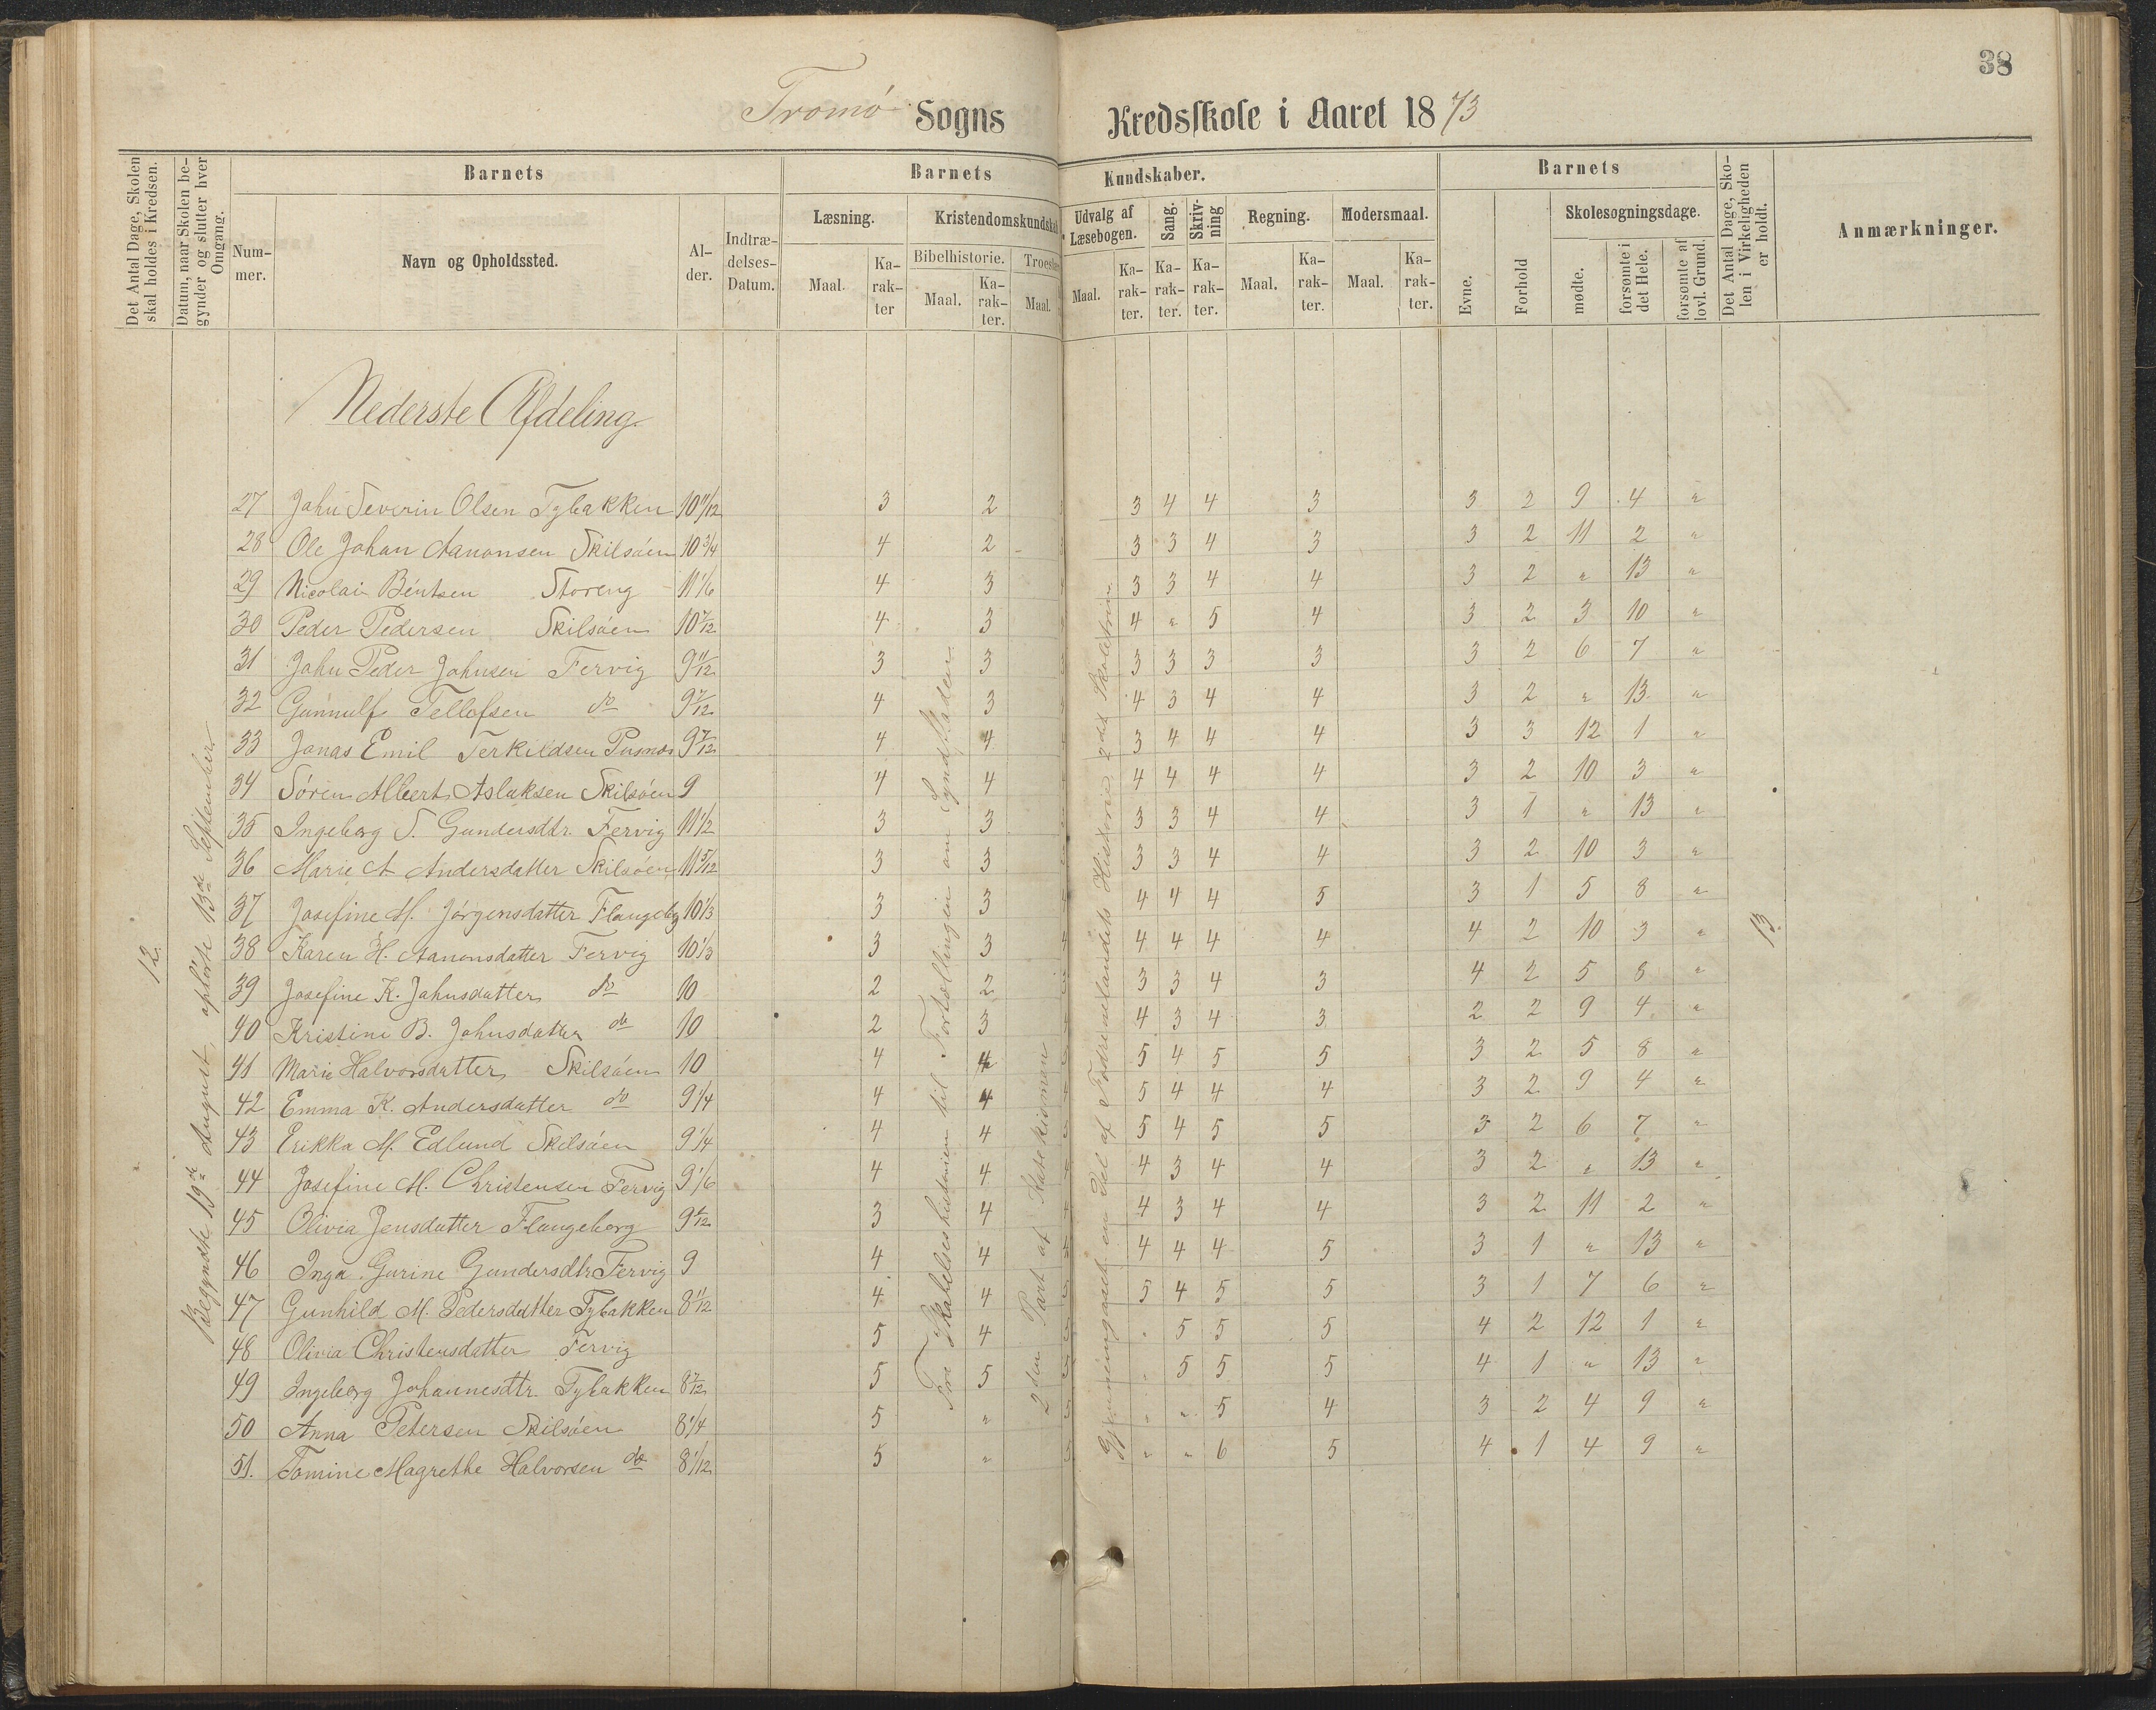 38
Tromø Sogns Kredsskole i Aaret 1873
Det Antal Dage, Skolen skal holdes i Kredsen.
Datum, naar Skolen begynder og slutter hver Omgang.
Barnets
Barnets Kundskaber.
Barnets
Det Antal Dage, Skolen i Virkeligheden er holdt.
Anmærkninger.
Nummer.
Navn og Opholdssted.
Alder.
Indtrædelses-Datum.
Læsning.
Kristendomskundskab
Udvalg af Læsebogen.
Sang.
Skrivning
Regning.
Modersmaal.
Evne.
Forhold
Skolesøgningsdage.
Bibelhistorie.
Troes
Maal. Karakter
Maal. Karakter.
Maal.
Maal. Karakter.
Karakter.
Karakter.
Maal. Karakter.
Maal. Karakter.
mødte.
forsømte i det Hele.
forsømte af lovl. Grund.
Nederste Afdeling
27 Jahn Severin Olsen Tybakken 10 11/12 3 2 3 4 4 3 3 2 9 4 "
28 Ole Johan Aanonsen Skilsøen 10 3/4 4 2 3 3 4 3 3 2 11 2 "
29 Nicolai Bentsen Storeng 11 1/6 4 3 3 3 4 4 3 2 " 13 "
30 Peder Pedersen Skilsøen 10 7/12 4 3 4 " 5 4 3 2 3 10 "
31 Jahn Peder Johnsen Fervig 9 11/12 3 3 3 3 3 3 3 2 6 7 "
32 Gunnulf Tellofsen do 9 7/12 4 3 4 3 4 4 3 2 " 13 "
33 Jonas Emil Terkildsen Pusnes 9 7/12 4 4 3 4 4 4 3 3 12 1 "
34 Søren Albert Aslaksen Skilsøen 9 4 4 4 4 4 4 3 2 10 3 "
35 Ingeborg S. Gundersdtr. Fervig 11 1/2 3 3 3 3 4 4 3 1 " 13 "
36 Marie A Andersdatter Skilsøen 11 5/12 3 3 3 3 4 4 3 2 10 3 "
37 Josefine M. Jørgensdatter Flangebg 10 1/3 3 3 4 4 4 5 3 1 5 8 "
38 Karen H. Aanonsdatter Fervig 10 1/3 3 3 4 4 4 4 4 2 10 3 "
39 Josefine K. Jahnsdatter do 10 2 2 3 3 4 3 4 2 5 8 "
40 Kristine B. Johnsdatter do 10 2 3 4 3 4 3 2 2 9 4 "
41 Marie Halvorsdatter Skilsøen 10 4 4 5 4 5 5 3 2 5 8 "
42 Emma K. Andersdatter do 9 1/4 4 4 5 4 4 4 3 2 9 4 "
43 Erikka M. Edlund Skilsøen 9 1/4 4 4 5 4 5 5 3 2 6 7 "
44 Josefine M. Christensen Fervig 9 1/6 4 4 4 3 4 4 3 2 " 13 "
45 Olivia Jensdatter Flangeborg 9 1/12 3 4 4 3 4 4 3 2 11 2 "
46 Inga Gurine Gundersdtr Fervig 9 4 4 4 4 4 5 3 1 " 13 "
47 Gunhild M. Pedersdatter Tybakken 8 11/12 4 4 5 4 5 5 3 1 7 6 "
48 Olivia Christensdatter Fervig 5 4 " 5 5 5 4 2 12 1 "
49 Ingeborg Johannesdtr. Tybakken 8 7/12 5 5 " 5 5 5 4 1 " 13 "
50 Anna Petersen Skilsøen 8 1/4 5 " " " 5 4 3 2 4 9 "
51. Tomine Magrethe Halvorsen do 8 1/12 5 " " " 6 5 4 1 4 9 "
12.
Begyndte 19de August, ophørte 13de September
Fra Skabelseshistorien til Fortællingen om Syndfloden
2den Part af Katekismen
Gjennemgaaet en Del af Fædrenelandets Historie, 2det Skoletrin.
13.